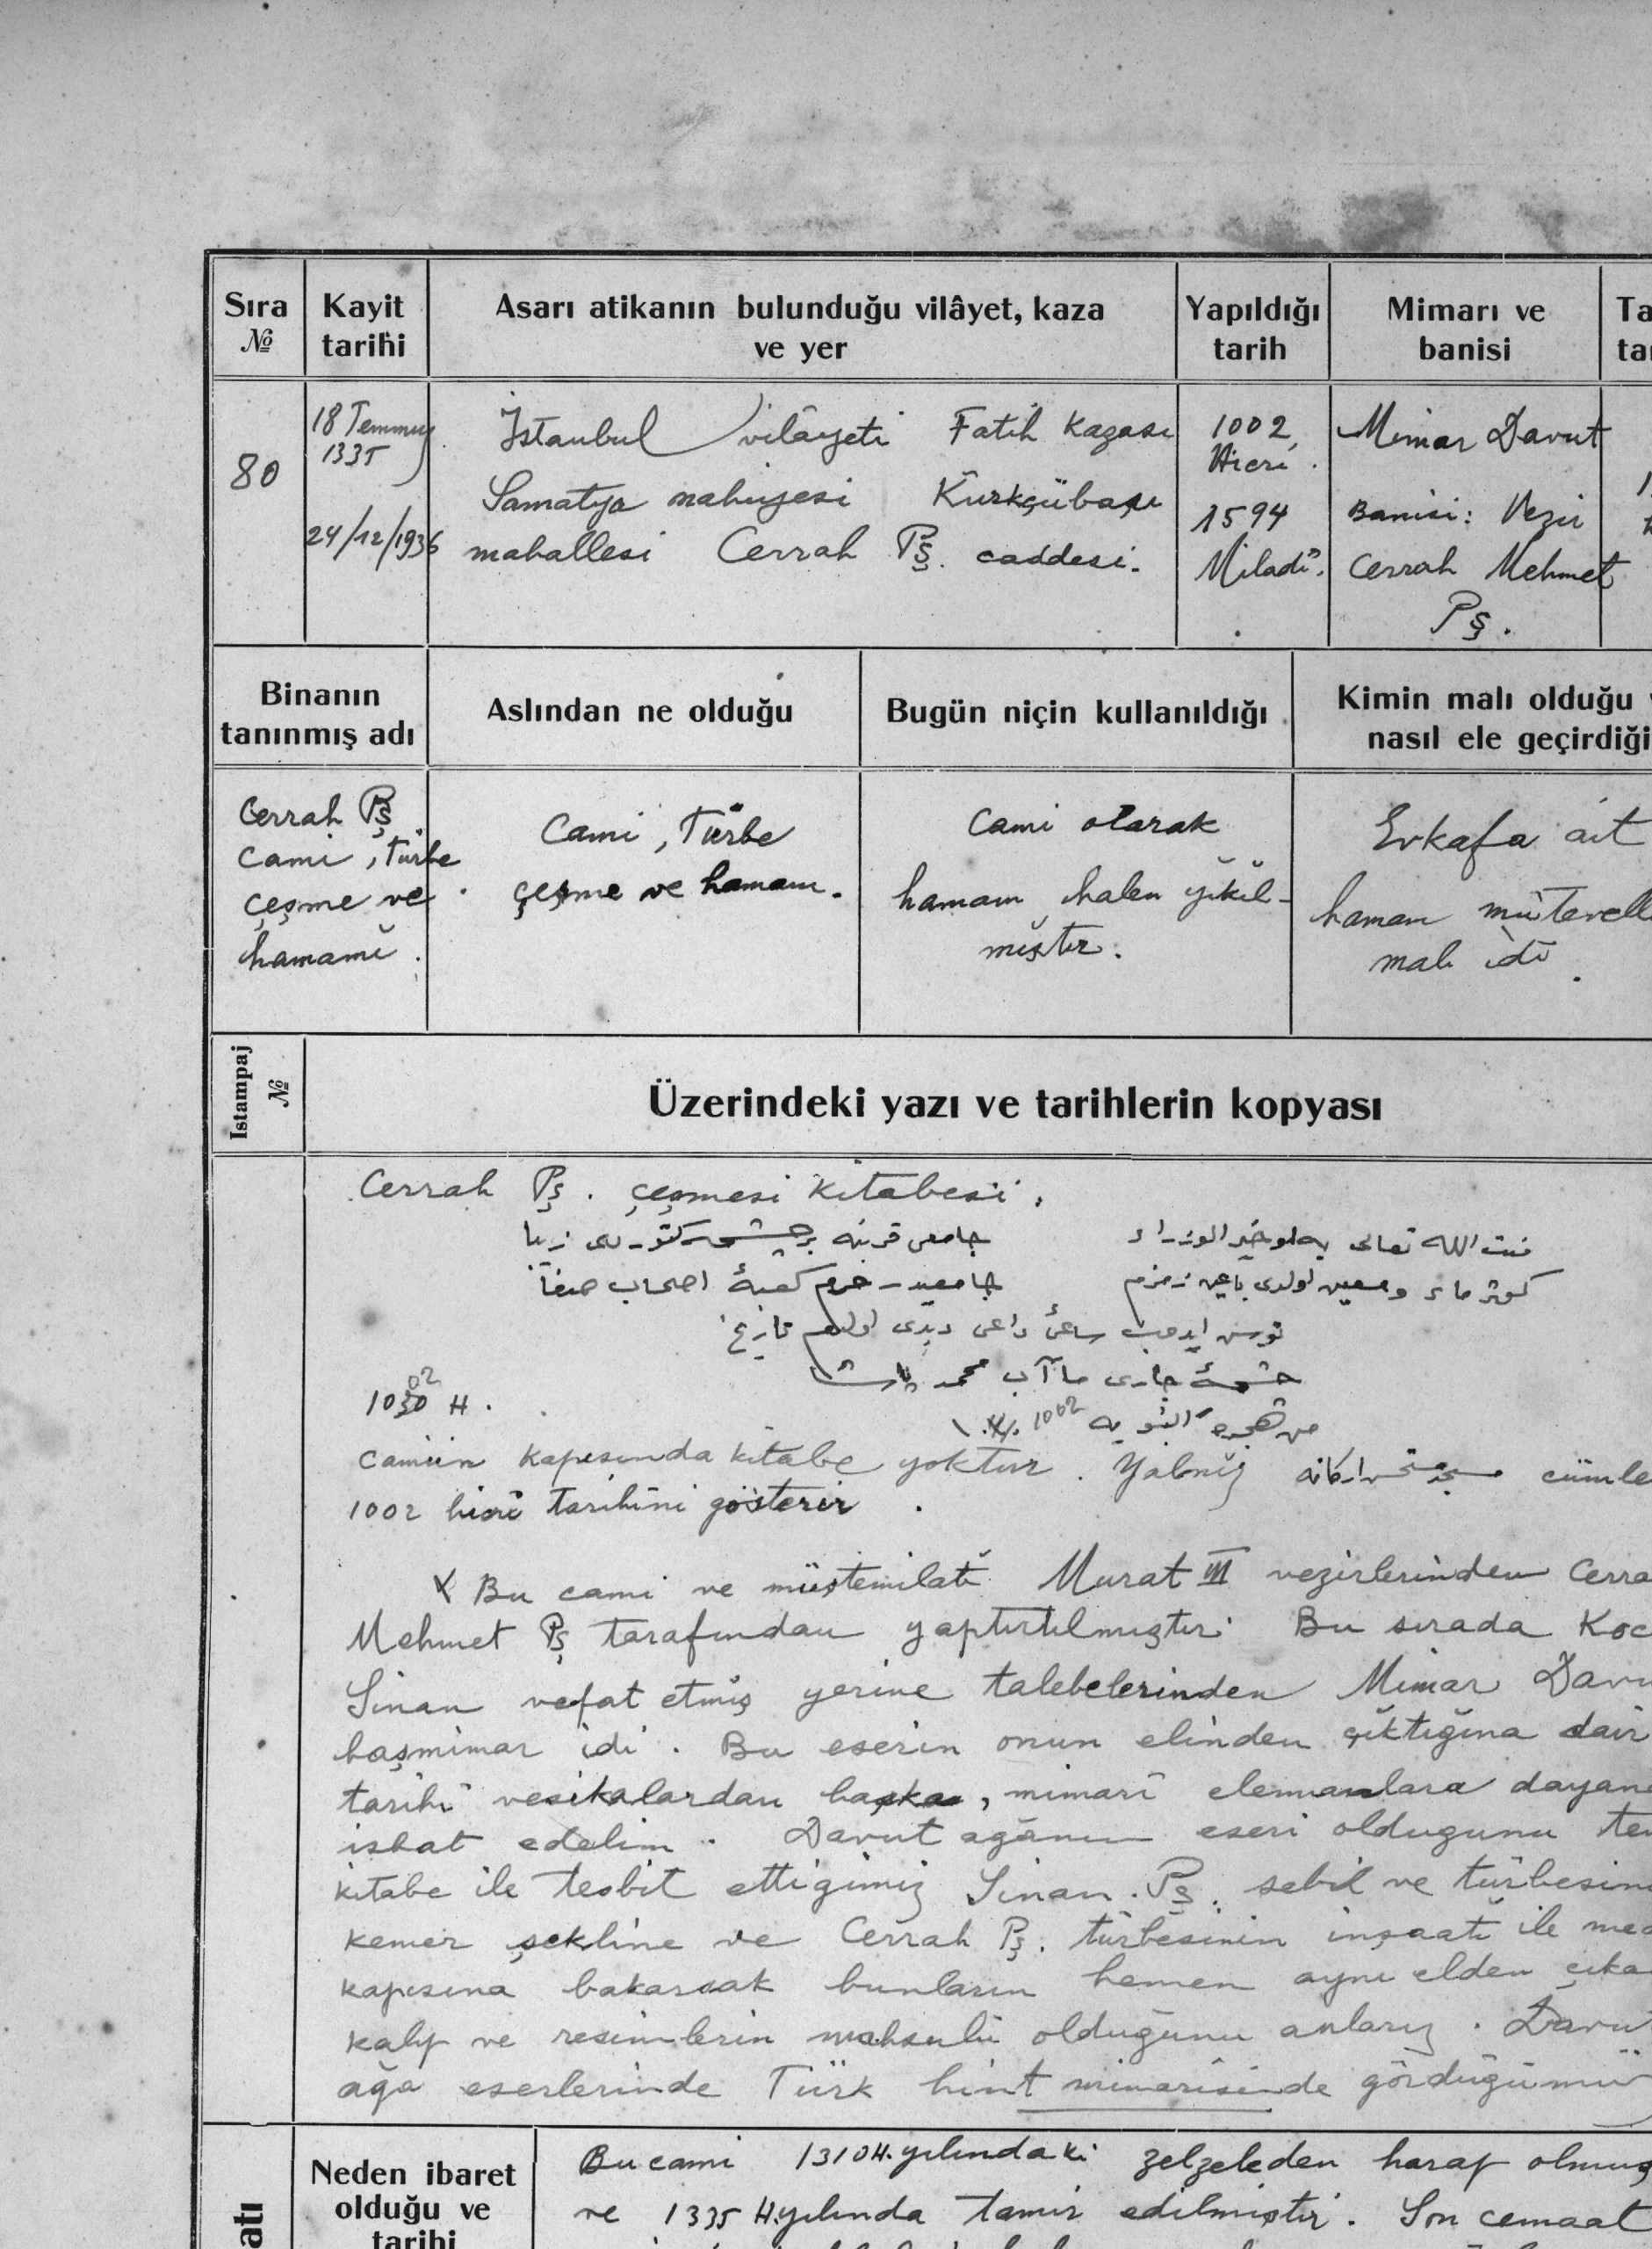 Sıra
№
Kayit
tarihi
Asarı atikanın bulunduğu vilâyet, kaza
ve yer
Yapıldığı
tarih
Mimarı ve
banisi
Ta
tar
80
18 Temmuz
1335
24/12/1936
İstanbul vilâyeti Fatih Kazası
Samatya nahiyesi Kürkçübaşı
mahallesi Cerrah Pş. caddesi.
1002
Hicrî.
1594
Miladî.
Mimar Davut
Banisi: Vezir
Cerrah Mehmet
Pş.
Binanın
tanınmış adı
Aslından ne olduğu
Bugün niçin kullanıldığı
Kimin malı olduğu v
nasıl ele geçirdiği
Cerrah Pş
Cami, Türbe
çeşme ve
hamamı.
Cami, Türbe
çeşme ve hamam.
Cami olarak
hamam halen yıkıl-
mıştır.
Evkafa ait
hamam mütevelli
malı idi.
Istampaj
№
Üzerindeki yazı ve tarihlerin kopyası
Cerrah Pş. çeşmesi Kitabesi.
الله تعالى خير الوزراء جامعى قربنه زيبا
كوثر ماء ومعين اولدى زمزم حرم كعبۀ اصحاب صفا
ساعئ داعى ديدى تاريخ
چشمۀ جارى ماآب محمد پاشا
1002 H.
من هجره النبويه 1002
Camiin kapısında kitabe yoktur. Yalnız cümle
1002 hicrî tarihini gösterir.
X Bu cami ve müştemilatı Murat III vezirlerinden Cerra
Mehmet Pş tarafından yaptırılmıştır. Bu sırada Koc
Sinan vefat etmiş yerine talebelerinden Mimar Davu
başmimar idi. Bu eserin onun elinden çıktığına dair
tarihî vesikalardan başka, mimarî elemanlara dayana
isbat edelim. Davut ağanın eseri olduğunu te
kitabe ile tesbit ettiğimiz Sinan Pş. sebil ve türbesini
kemer şekline ve Cerrah Pş. türbesinin inşaatı ile med
kapısına bakarsak bunların hemen aynı elden çıka
kalıp ve resimlerin mahsulü olduğunu anlarız. Davu
ağa eserlerinde Türk hint mimarisinde gördüğümü
atı
Neden ibaret
olduğu ve
tarihi
Bu cami 1310 H. yılındaki zelzeleden harap olmuş
ve 1335 H. yılında tamir edilmiştir. Son cemaat